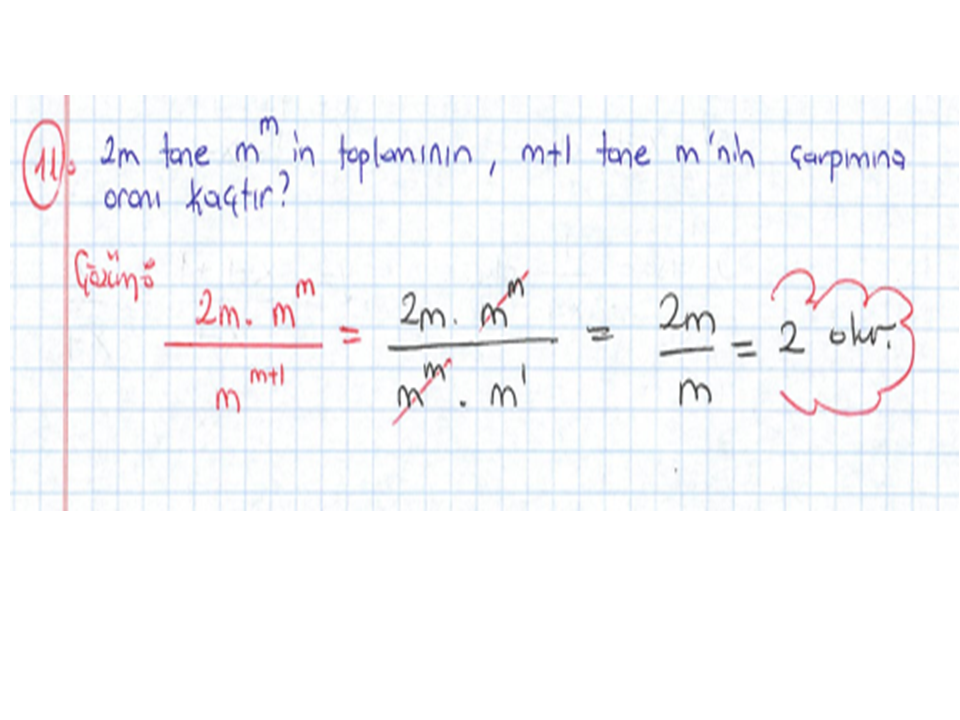 11. 2m tane m^m in toplamının, m+1 tane m'nin çarpımına
oranı kaçtır?
Çözüm:
2m . m^m / m^(m+1) = 2m . m^m / m^m . m^1 = 2m / m = 2 olur.